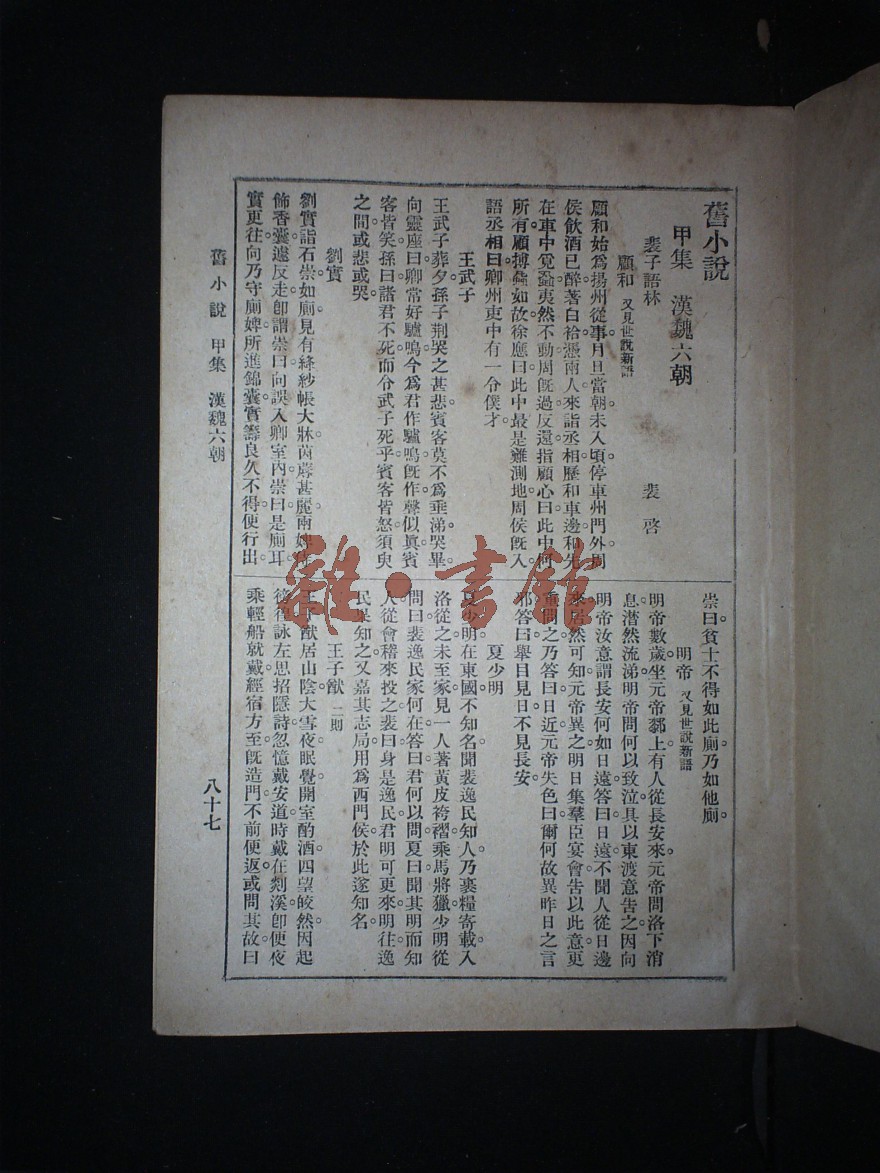 舊小說
甲集　漢魏六朝
裴子語林　裴啓
顧和　又見世說新語
顧和始爲揚州從事。月旦當朝。未入。頃停車州門外。周
侯飲酒已醉。著白袷。憑兩人。來詣丞相。歷和車邊。和先
在車中覓蝨。夷然不動。周旣過。反還。指顧心曰。此中何
所有。顧搏蝨如故。徐應曰。此中最是難測地。周侯旣入
語丞相曰。卿州吏中有一令僕才。
王武子
王武子葬。夕孫子荆哭之甚悲。賓客莫不爲垂涕。哭畢
向靈座曰。卿常好驢鳴。今爲君作驢鳴。旣作。聲似眞。賓
客皆笑。孫曰。諸君不死。而令武子死乎。賓客皆怒。須臾
之間。或悲。或哭。
劉實
劉實詣石崇。如廁。見有絳紗帳大牀。茵蓐甚麗。兩婢
飾香囊。遽反走。卽謂崇曰。向誤入卿室內。崇曰。是廁耳
實更往。向乃守廁婢。所進錦囊實籌。良久不得。便行出
崇曰。貧士不得如此廁。乃如他廁。
明帝　又見世說新語
明帝數歲。坐元帝膝上。有人從長安來。元帝問洛下消
息。潸然流涕。明帝問何以致泣。具以東渡意告之。因向
明帝。汝意謂長安何如日遠。答曰。日遠。不聞人從日邊
來。居然可知。元帝異之。明日集羣臣宴會。告以此意。更
重問之。乃答曰。日近。元帝失色曰。爾何故異昨日之言
邪。答曰。舉目見日。不見長安
夏少明
夏少明在東國不知名。聞裴逸民知人。乃裹糧寄載。入
洛從之。未至家。見一人著黃皮袴褶。乘馬將獵。少明從
問曰。裴逸民家何在。答曰。君何以問。夏曰。聞其明而知
人。從會稽來投之。裴曰。身是逸民。君明可更來。明往。逸
民果知之。又嘉其志局。用爲西門侯。於此遂知名。
王子猷　二則
王子猷居山陰。大雪夜。眠覺。開室酌酒。四望皎然。因起
彷徨。詠左思招隱詩。忽憶戴安道。時戴在剡溪。卽便夜
乘輕船就戴。經宿方至。旣造門。不前便返。或問其故。曰
舊小說　甲集　漢魏六朝　八十七
雜·書館